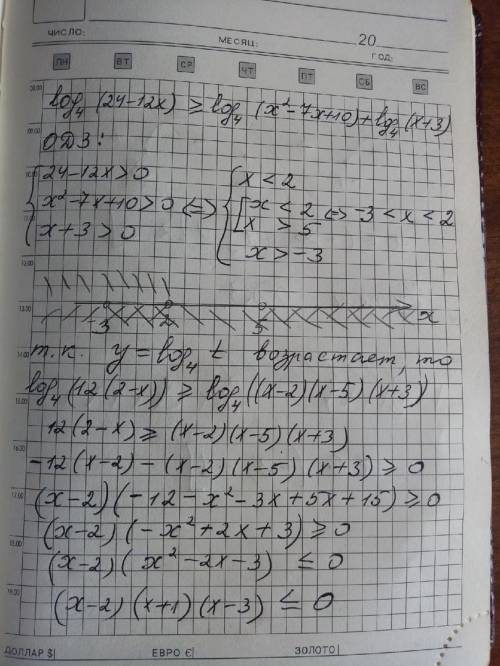 ЧИСЛО: МЕСЯЦ: 20 ГОД:
ПН ВТ СР ЧТ ПТ СБ ВС
08.00 log₄ (24-12x) ≥ log₄ (x²-7x+10) + log₄ (x+3)
09.00 ОДЗ:
{ 24-12x>0 { x<2
x²-7x+10>0 ⇔ [ x<2 ⇔ -3<x<2
x>5
x+3>0 x>-3
12.00
13.00 -3 2 5 x
т.к. y=log₄ t возрастает, то
14.00
log₄(12(2-x)) ≥ log₄((x-2)(x-5)(x+3))
12(2-x) ≥ (x-2)(x-5)(x+3)
16.00
-12(x-2)-(x-2)(x-5)(x+3) ≥ 0
17.00 (x-2)(-12-x²-3x+5x+15) ≥ 0
(x-2)(-x²+2x+3) ≥ 0
18.00
(x-2)(x²-2x-3) ≤ 0
19.00 (x-2)(x+1)(x-3) ≤ 0
ДОЛЛАР $ ЕВРО € ЗОЛОТО